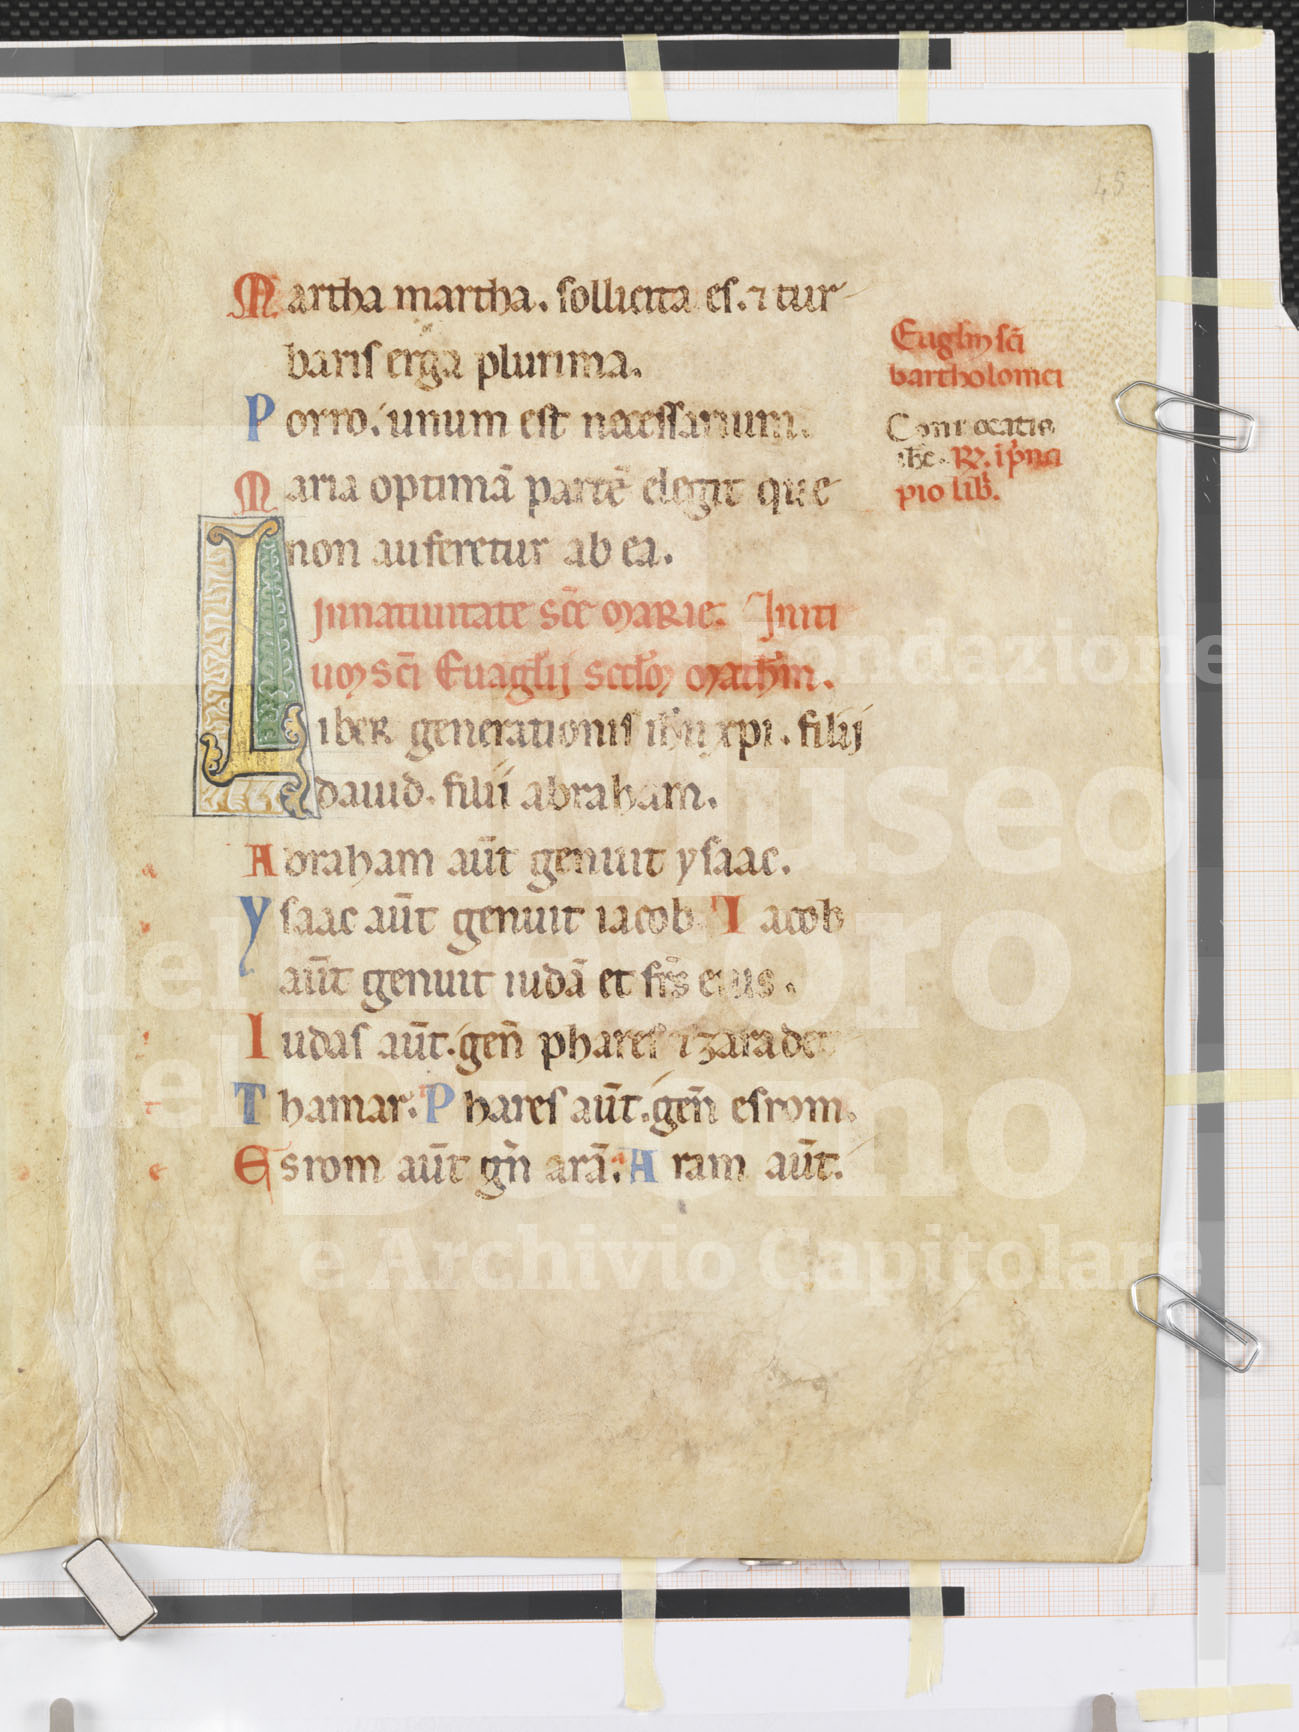 45
Martha martha. sollicita es. ⁊ tur
baris erga plurima.
Porro. unum est necessarium.
Maria optimã partẽ elegit que
non auferetur ab ea.
In natiuitate sc̃e Marie. Initi
um sc̃i Euãglij scdm̃ Mathm̃.
Liber generationis ihũ xpi. filij
dauid. filii abraham.
Abraham aũt genuit ysaac.
Ysaac aũt genuit iacob. Iacob
aũt genuit iudã et fr̃s eius.
Iudas aũt. geñ phares ⁊ zara de
Thamar. Phares aũt. geñ esrom.
Esrom aũt gñ arã. Aram aũt.
Euglm̃ sc̃i
bartholomei
Conuocatis
ihc. R. i p̃nci
pio lib̃.
Fondazione
Museo
del Tesoro
del Duomo
e Archivio Capitolare